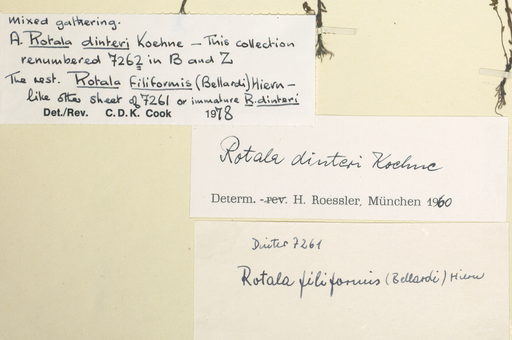 Mixed gathering.
A. Rotala dinteri Koehne — This collection
renumbered 7262 in B and Z
The rest. Rotala filiformis (Bellardi) Hiern —
like other sheet of 7261 or immature R. dinteri
Det./Rev. C. D. K. Cook 1978
Rotala dinteri Koehne
Determ. -rev. H. Roessler, München 1960
Dinter 7261
Rotala filiformis (Bellardi) Hiern